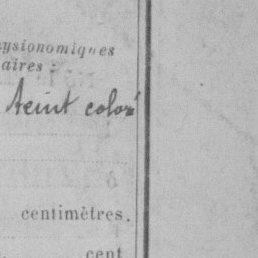 ysionomiques
aires :
teint coloré
centimètres.
cent